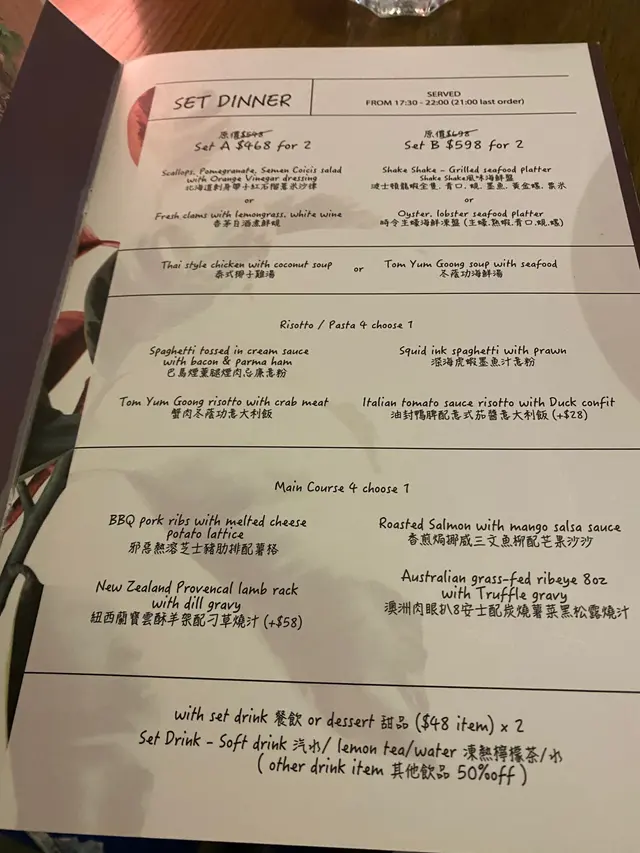 SET DINNER
SERVED
FROM 17:30 - 22:00 (21:00 last order)
原價$548
Set A $468 for 2
原價$698
Set B $598 for 2
Scallops, Pomegranate, Semen Coicis salad
with Orange Vinegar dressing
北海道刺身帶子紅石榴薏米沙律
or
Fresh clams with lemongrass, white wine
香茅白酒煮鮮蜆
Shake Shake - Grilled seafood platter
Shake Shake風味海鮮盤
波士頓龍蝦金隻, 青口, 蜆, 墨魚, 黃金螺, 粟米
or
Oyster, lobster seafood platter
時令生蠔海鮮凍盤 (生蠔, 熟蝦, 青口, 蜆, 螺)
Thai style chicken with coconut soup
泰式椰子雞湯
or
Tom Yum Goong soup with seafood
冬蔭功海鮮湯
Risotto / Pasta 4 choose 1
Spaghetti tossed in cream sauce
with bacon & parma ham
巴馬煙薰腿煙肉忌廉意粉
Squid ink spaghetti with prawn
深海虎蝦墨魚汁意粉
Tom Yum Goong risotto with crab meat
蟹肉冬蔭功意大利飯
Italian tomato sauce risotto with Duck confit
油封鴨脾配意式茄醬意大利飯 (+$28)
Main Course 4 choose 1
BBQ pork ribs with melted cheese
potato lattice
邪惡熱溶芝士豬肋排配薯格
Roasted Salmon with mango salsa sauce
香煎焗挪威三文魚柳配芒果沙沙
New Zealand Provencal lamb rack
with dill gravy
紐西蘭寶雲酥羊架配刁草燒汁 (+$58)
Australian grass-fed ribeye 8oz
with Truffle gravy
澳洲肉眼扒8安士配炭燒薯菜黑松露燒汁
with set drink 餐飲 or dessert 甜品 ($48 item) x 2
Set Drink - Soft drink 汽水/ lemon tea/water 凍熱檸檬茶/水
( other drink item 其他飲品 50%off )